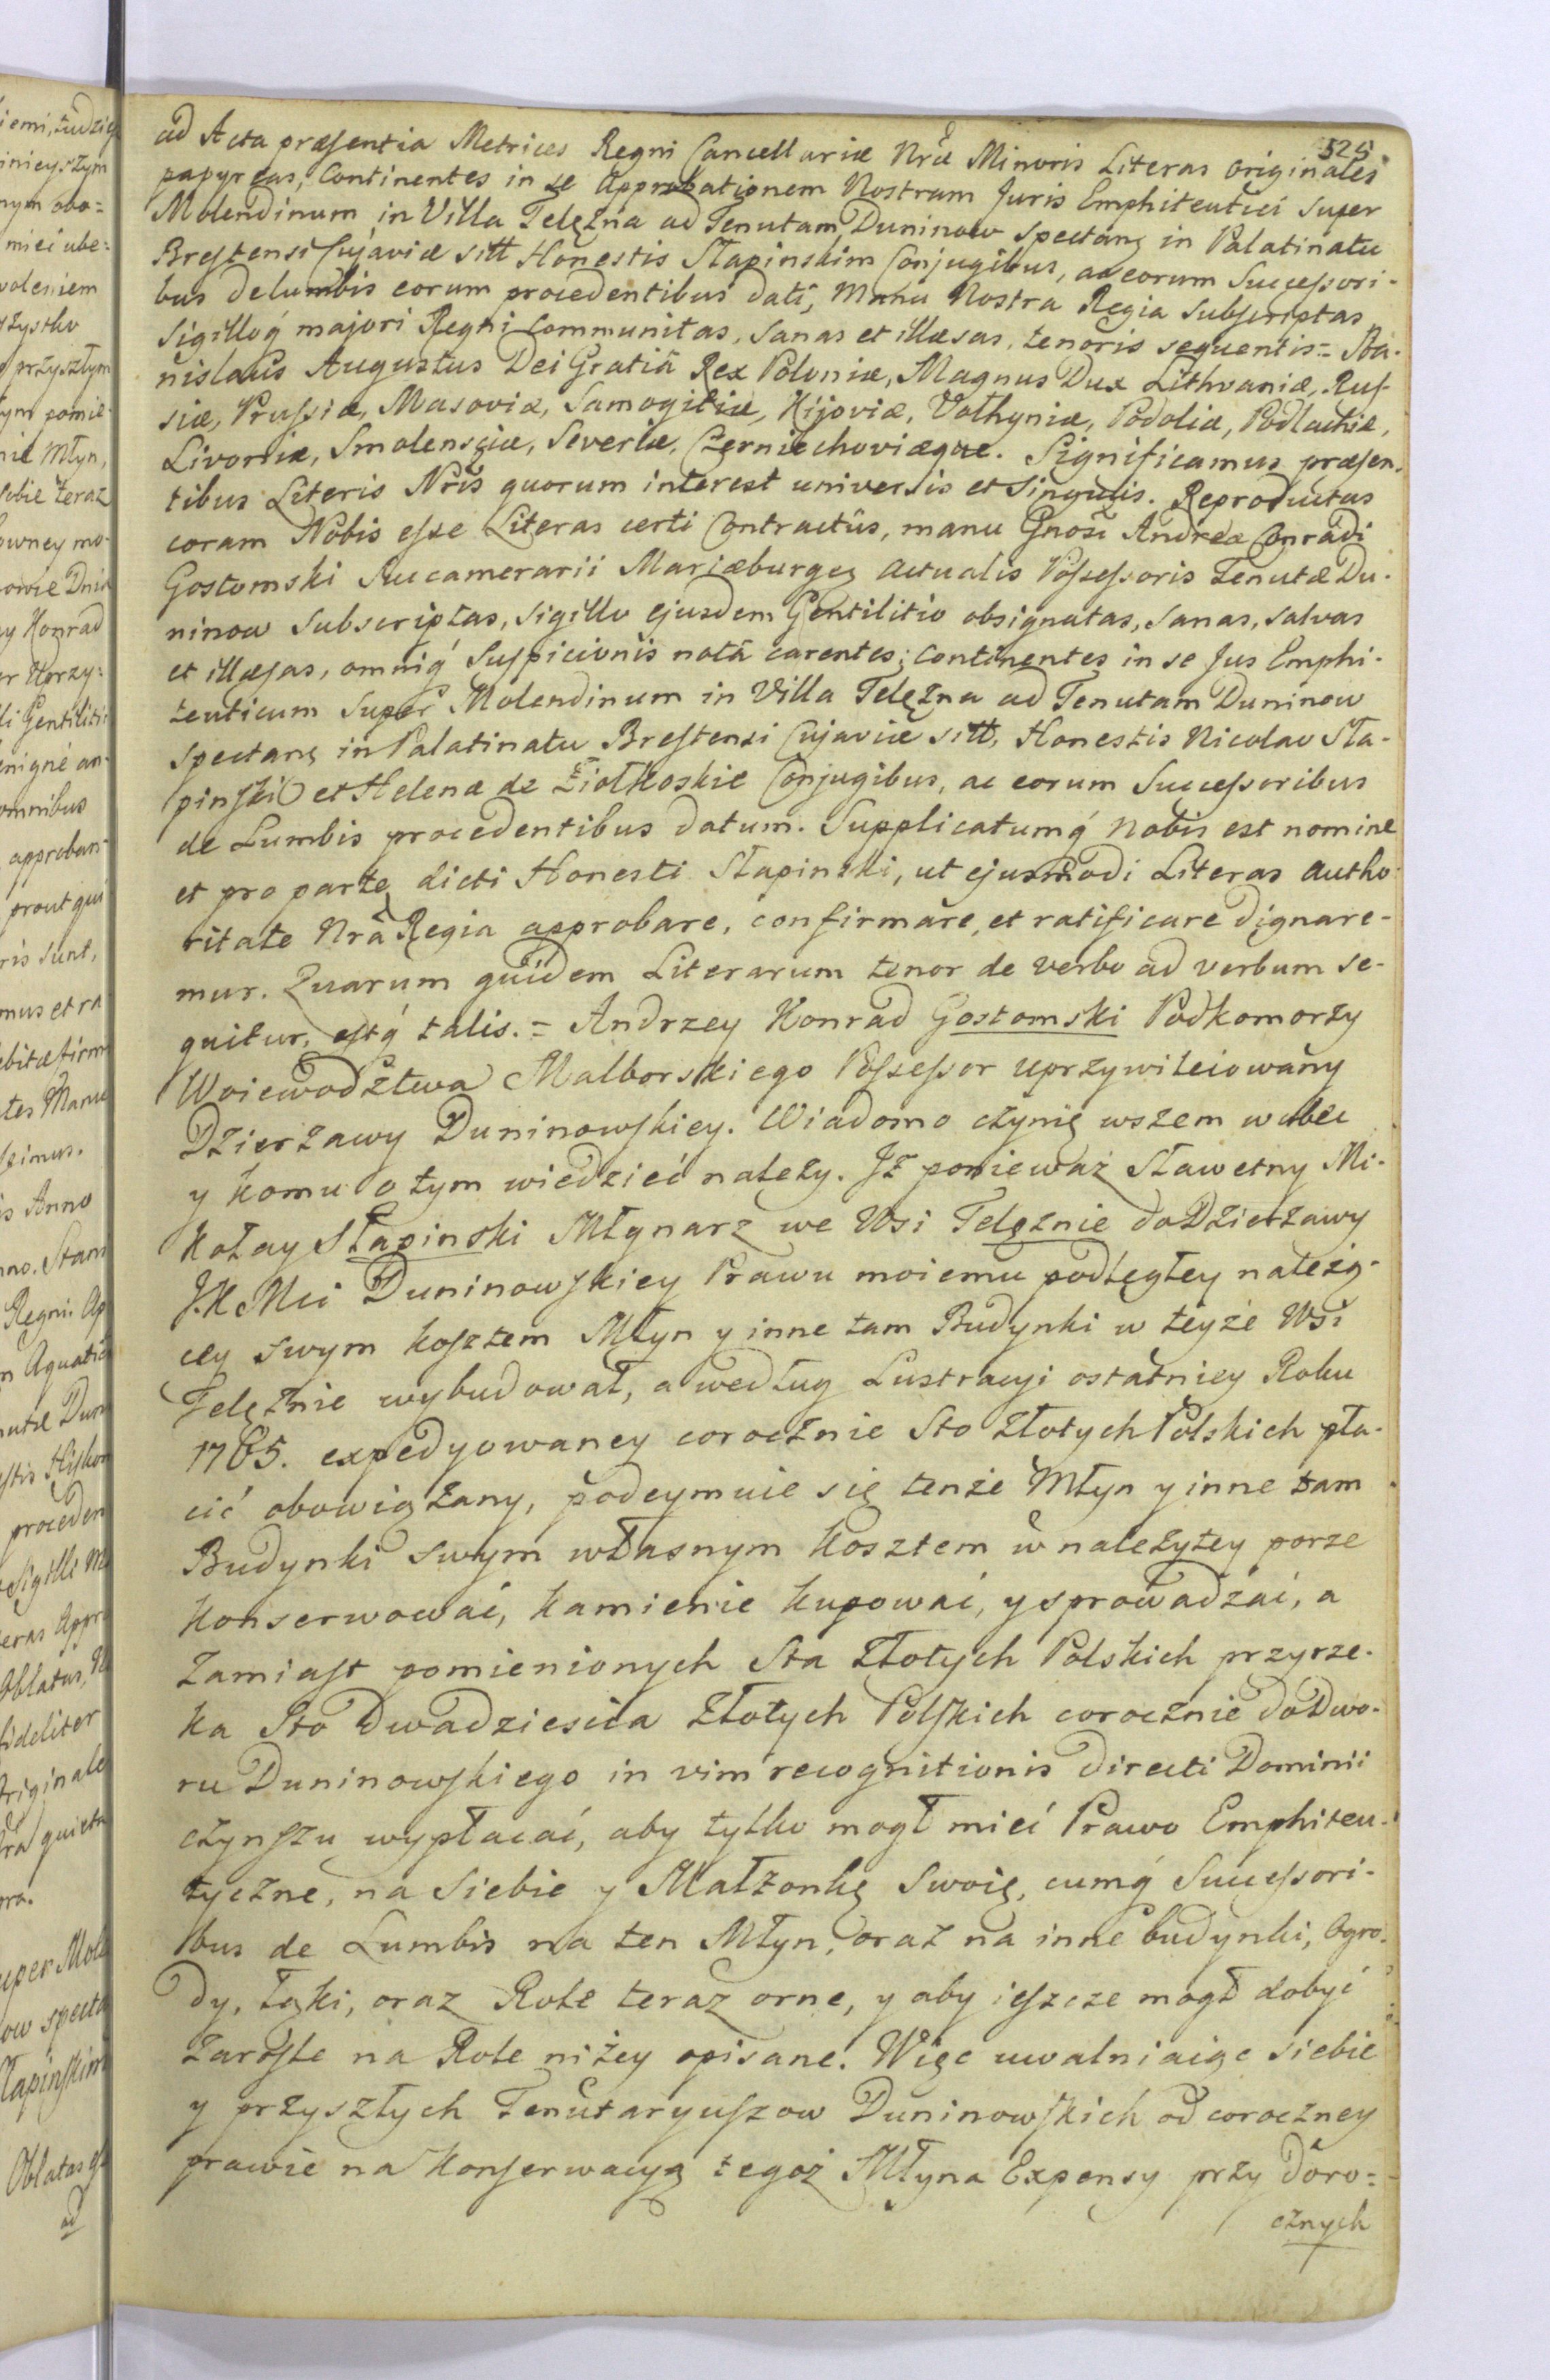 525.
ad Acta præsentia Metrices Regni Cancellariæ Nræ Minoris Literas originales
papyreas, Continentes in se Approbationem Nostram Juris Emphiteutici super
Molendinum in Villa Telężna ad Tenutam Duninow spectanȝ in Palatinatu
Brestensi Cujaviæ sitt Honestis Słapinskim Conjugibus, ac eorum Successori-
bus delumbis eorum procedentibus dati, Manu Nostra Regia Subscriptas
Sigilloq́ majori Regni Communitas, Sanas et illæsas, tenoris sequentis = Sta-
nislaus Augustus Dei Gratiâ Rex Poloniæ, Magnus Dux Lithvaniæ, Rus-
siæ, Prussiæ, Masoviæ, Samogitiæ, Kijoviæ, Volhyniæ, Podoliæ, Podlachiæ,
Livoniæ, Smolensciæ, Severiæ, Czerniechoviæque. Significamus præsen-
tibus Literis Nris quorum interest universis et Singulis. Reproductas
coram Nobis esse Literas certi Contractûs, manu Gnosi Andreæ Conradi
Gostomski Succamerarii Mariæburgeȝ actualis Possessoris Tenutæ Du-
ninow Subscriptas, Sigillo ejusdem Gentilitio obsignatas, Sanas, salvas
et illæsas, omniq́ Suspicionis notâ carentes; continentes in se Jus Emphi-
teuticum Super Molendinum in Villa Telężna ad Tenutam Duninow
Spectanȝ in Palatinatu Brestensi Cujaviæ sitt, Honestis Nicolao Sła-
pinski et Helenæ de Ziołkoskie Conjugibus, ac eorum Successoribus
de Lumbis procedentibus datum. Supplicatumq́ Nobis est nomine
et pro parte dicti Honesti Słapinski, ut ejusmodi Literas autho-
ritate Nrâ Regia approbare, confirmare, et ratificare dignare-
mur. Quarum quidem Literarum tenor de verbo ad verbum se-
quitur, estq́ talis. = Andrzey Konrad Gostomski Podkomorzy
Woiewodztwa Malborskiego Possessor uprzywileiowany
Dzierzawy Duninowskiey. Wiadomo czynię wszem w obec
y komu o tym wiedzieć nalezy. Iż ponieważ Sławetny Mi-
kołay Słapinski Młynarz we Wsi Telęznie do Dzierzawy
J.K Mci Duninowskiey Prawu moiemu podległey należą-
cey swym kosztem Młyn y inne tam Budynki w teyże Wsi
Telęznie wybudował, a według Lustracyi ostatniey Roku
1765. expedyowaney corocznie Sto Złotych Polskich pła-
cić obowiązany, podeymuie się tenże Młyn y inne tam
Budynki swym własnym kosztem w należytey porze
konserwować, kamienie kupować, y sprowadzać, a
Zamiast pomienionych Sta Złotych Polskich przyrze-
ka Sto Dwadziescia Złotych Polskich corocznie do Dwo-
ru Duninowskiego in vim recognitionis directi Dominii
czynszu wypłacać, aby tylko mogł mieć Prawo Emphiteu-
tyczne, na Siebie y Małzonkę Swoię, cumq́ Successori-
bus de Lumbis na ten Młyn, oraz na inne budynki, Ogro-
dy, Łąki, oraz Role teraz orne, y aby ieszcze mogł dobyć
Zarosłe na Role niżey opisane. Więc uwalniaiąc siebie
y przyszłych Tenutaryuszow Duninowskich od coroczney
prawie na Konserwacyą tegoż Młyna Expensy przy doro=
cznych